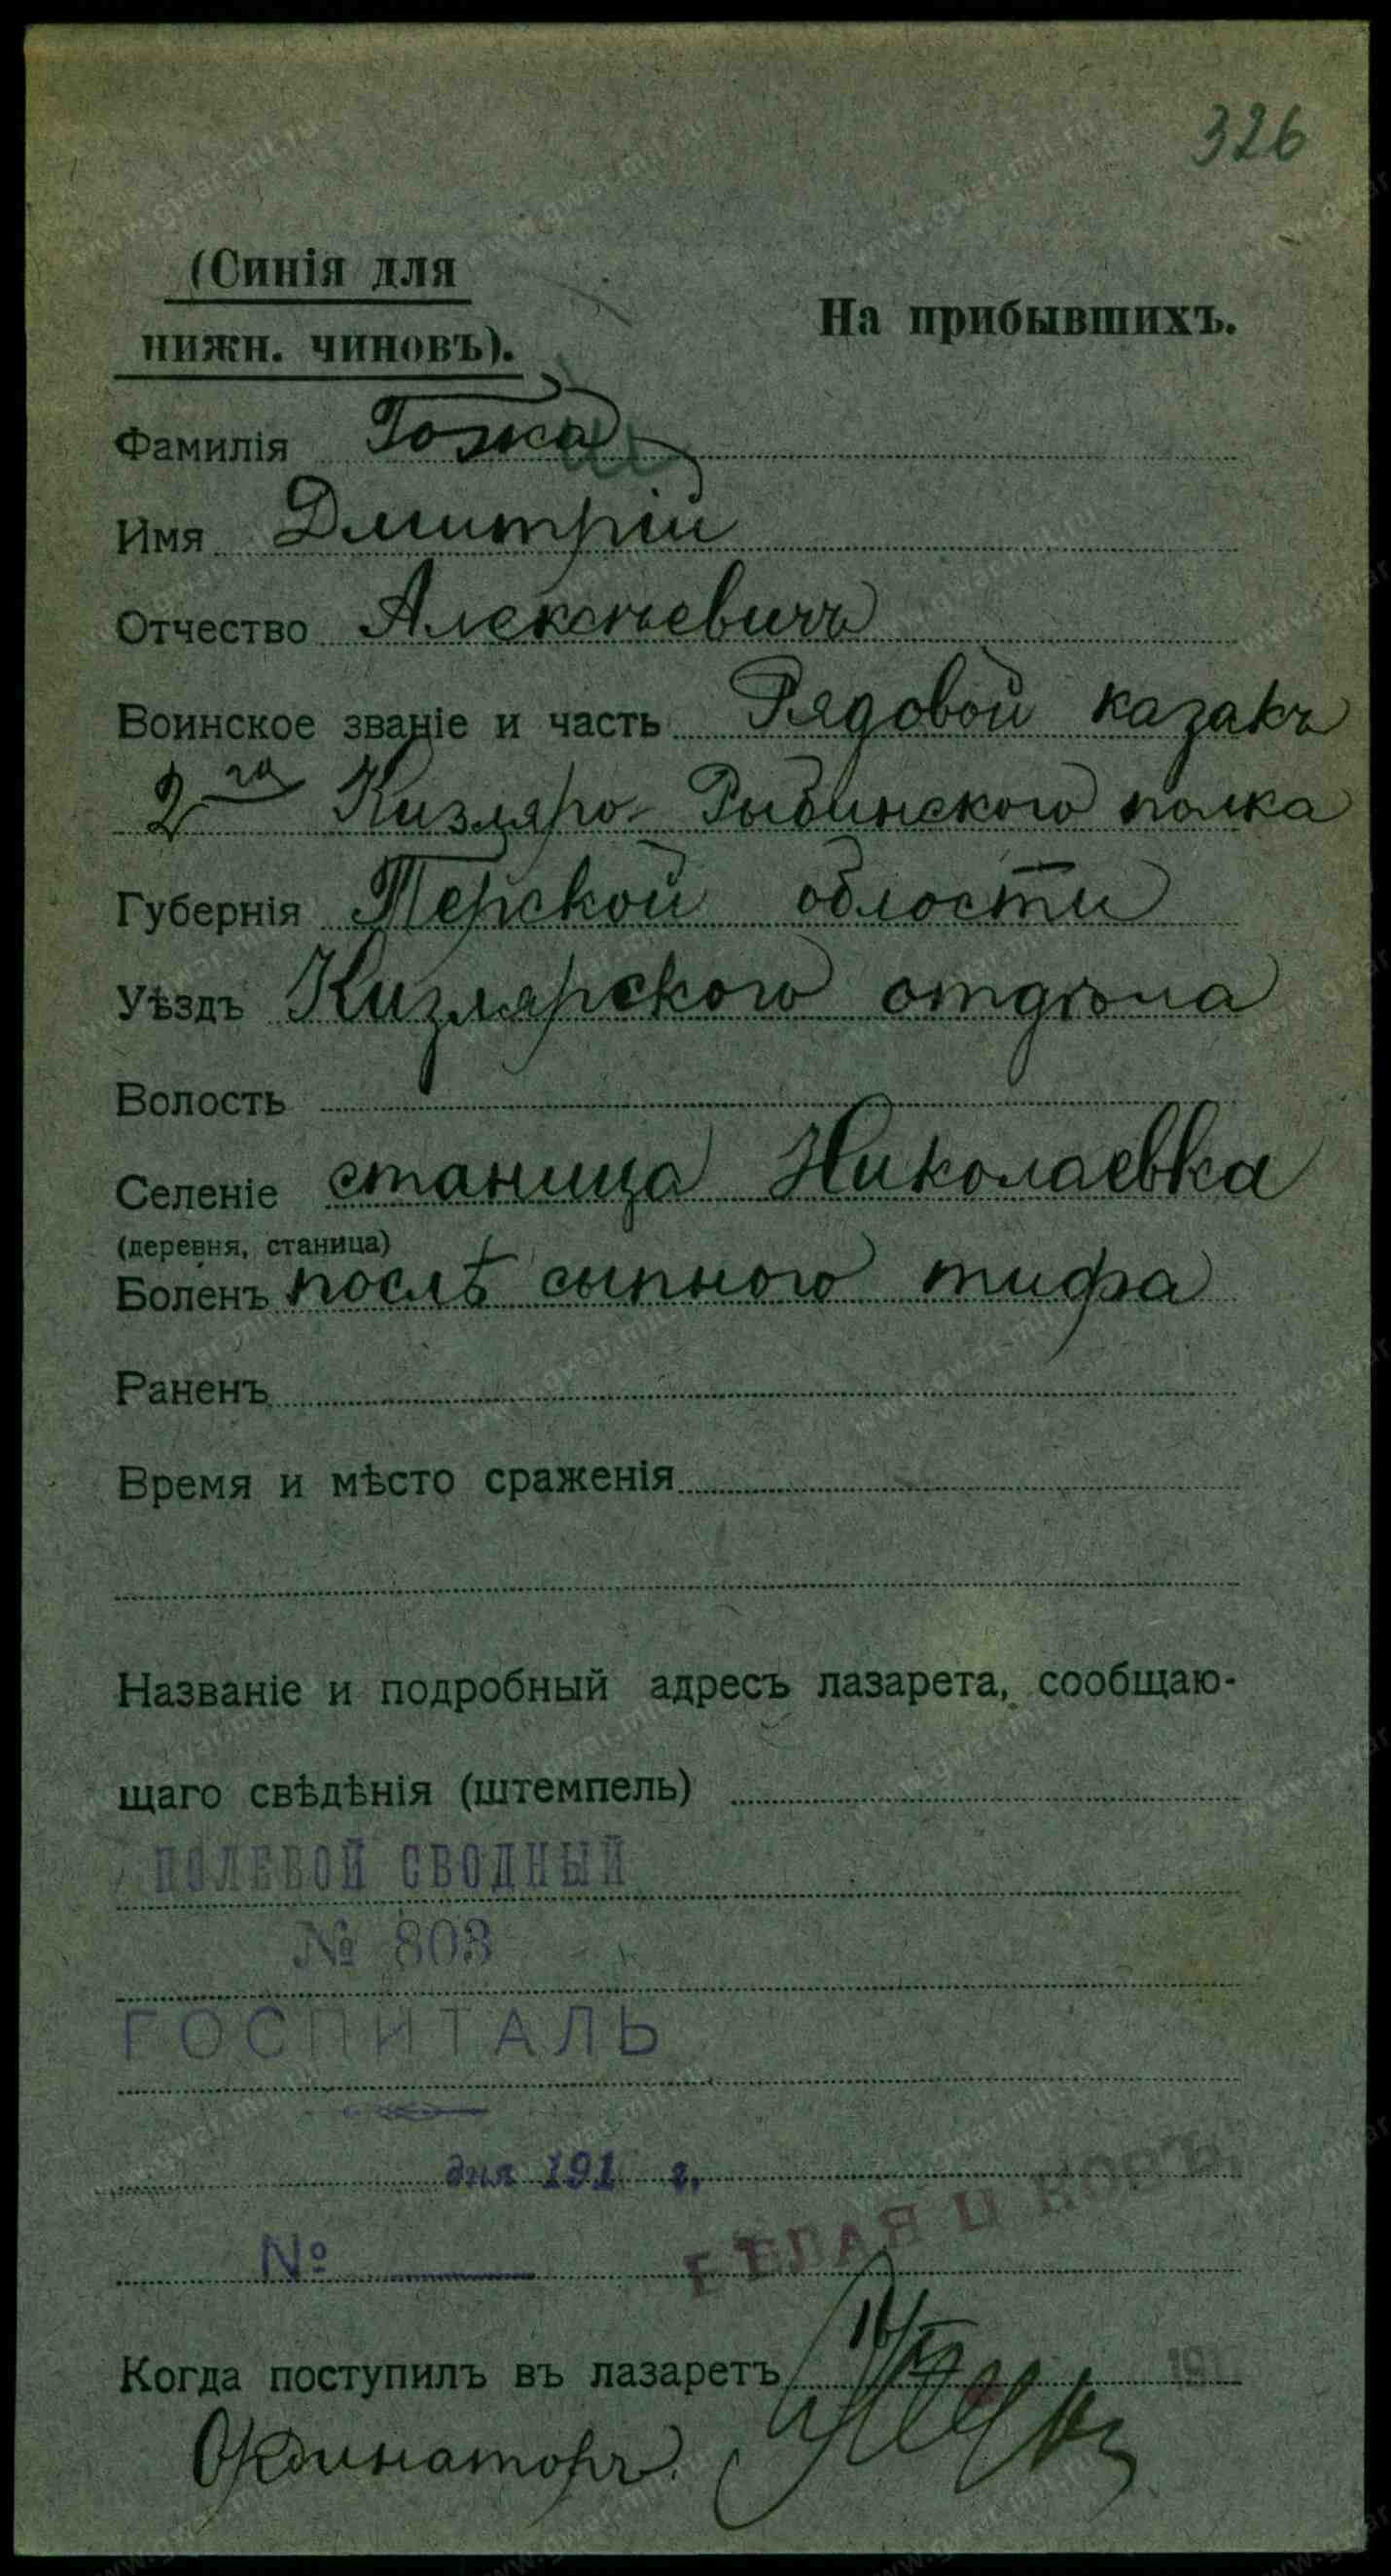 326
(Синія для
нижн. чиновъ).
На прибывшихъ.
Фамилія Гожа
Имя Дмитрій
Отчество Алексѣевичъ
Воинское званіе и часть Рядовой казакъ
2го Кизляро-Рыбинского полка
Губернія Терской области
Уѣздъ Кизлярского отдѣла
Волость
Селеніе станица Николаевка
(деревня, станица)
Боленъ послѣ сыпного тифа
Раненъ
Время и мѣсто сраженія
Названіе и подробный адресъ лазарета, сообщаю-
щаго свѣдѣнія (штемпель)
ПОЛЕВОЙ СВОДНЫЙ
№ 803
ГОСПИТАЛЬ
дня 191 г.
№
БѢЛАЯ Ц КОВЪ
Когда поступилъ въ лазаретъ 191
Ординаторъ